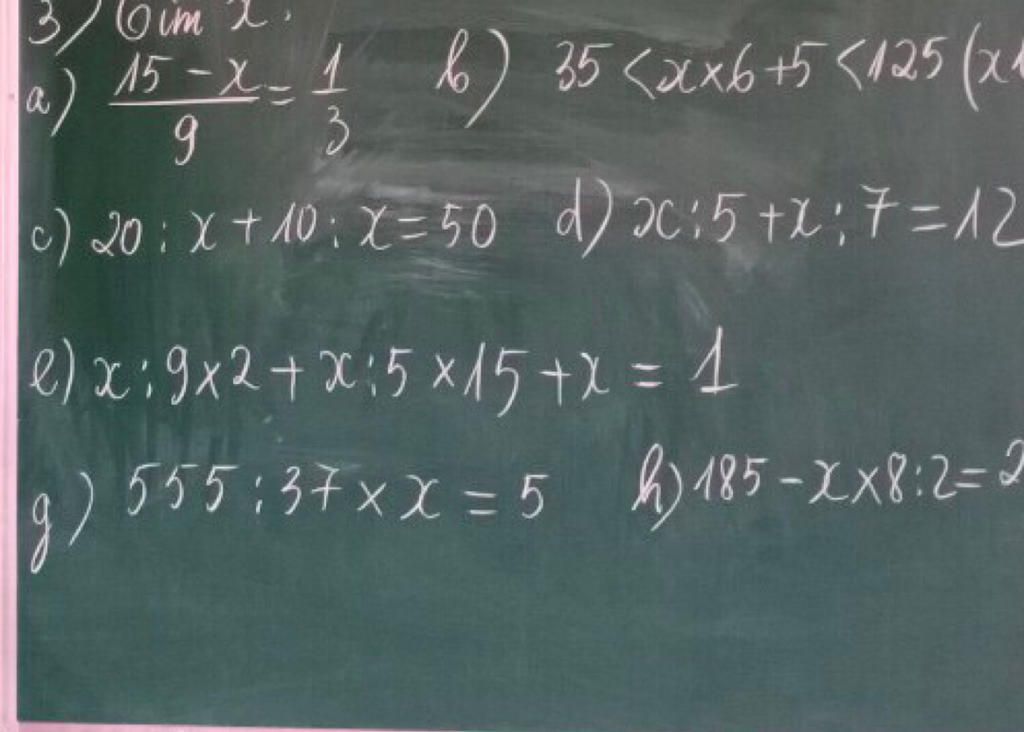 3) Tìm x.
a) \frac{15 - x}{9} = \frac{1}{3} b) 35 < x × 6 + 5 < 125 (x
c) 20 : x + 10 : x = 50 d) x : 5 + x : 7 = 12
e) x : 9 × 2 + x : 5 × 15 + x = 1
g) 555 : 37 × x = 5 h) 185 - x × 8 : 2 = 2